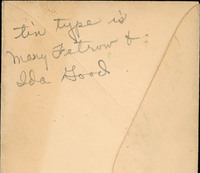 tin type is
Mary Fetrow &
Ida Good